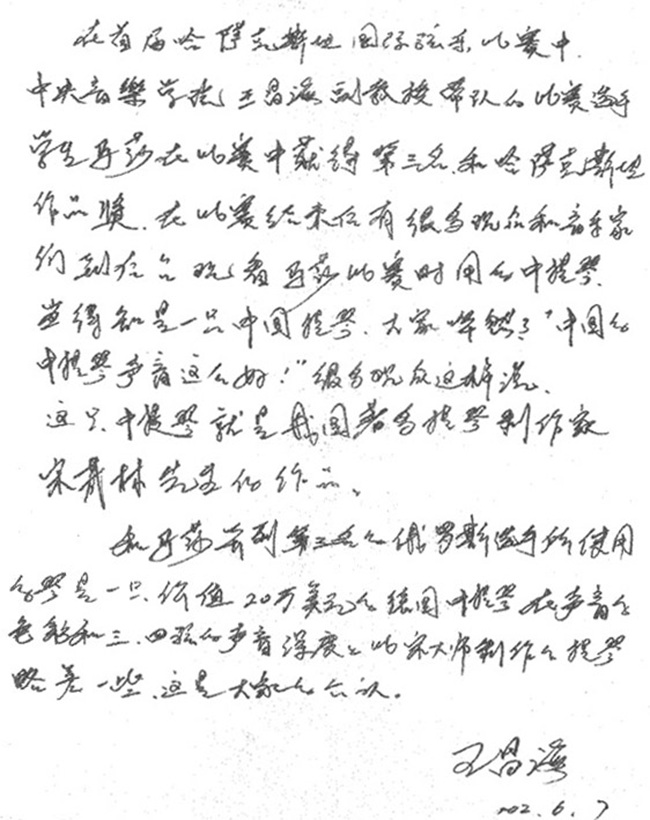 在首届哈萨克斯坦国际弦乐比赛中,
中央音樂学院王昌海副教授带队的比赛选手
学生马莎在比赛中获得第三名.和哈萨克斯坦
作品奖.在比赛结束后有很多观众和音乐家
们到后台观看马莎比赛时用的中提琴.
当得知是一只中国提琴.大家哗然了“中国的
中提琴声音这么好!”很多观众这样说.
这只中提琴就是我国著名提琴制作家
宋青林先生的作品.
和马莎并列第三名的俄罗斯选手所使用
的琴是一只价值20万美元的德国中提琴在声音的
色彩和三.四弦的声音深度上比宋大师制作的提琴
略差一些.这是大家的公认.
王昌海
2002.6.7